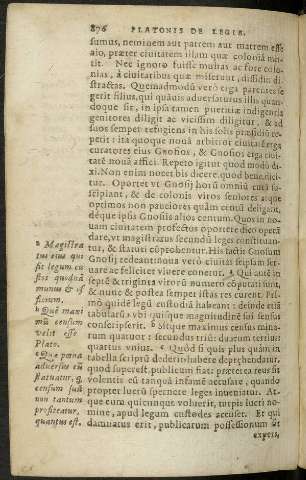 876 PLATONIS DE LEGIB.
sumus, neminem aut patrem aut matrem esse
aio, præter ciuitatem illam quæ coloniã mi-
tit. Nec ignoro fuisse multas ac fore colo-
nias, à ciuitatibus quæ miserunt, dissidiis di-
stractas. Quemadmodũ verò erga parentes se
gerit filius, qui quãuis aduersatur illis quan-
doque sit, in ipsa tamen pueritiæ indigentia
genitores diligit ac vicissim diligitur, & ad
suos semper refugiens in his solis præsidiũ re-
petit: ita quoque nouã arbitror ciuitatẽ erga
curatores eius Gnosios, & Gnosios erga ciui-
tatẽ nouã affici. Repeto igitur quod modò di-
xi. Non enim nocet bis dicere quod benè dici-
tur. Oportet vt Gnosij horũ omniũ curã su-
scipiant, & de colonis viros seniores atque
optimos non pauciores quàm centũ deligant,
déque ipsis Gnosiis alios centum. Quos in no-
uam ciuitatem profectos oportere dico opera
dare, vt magistratus secundũ leges constituan-
tur, & statuti cõprobentur. His factis Gnosum
Gnosij redeant: noua verò ciuitas seipsam ser-
uare ac feliciter viuere conetur. Qui autẽ in
septẽ & triginta virorũ numero cõputati sunt,
& nunc & postea semper istas res curent: Pri-
mò quidẽ legũ custodiã habeant: deinde etiã
tabularũ vbi quisque magnitudinẽ sui sensus
conscripserit. b Sitque maximus census mina-
rum quatuor: secundus triũ: duarum tertius:
quartus vnius. c Quòd si quis plus quàm in
tabella scriptũ dederit habere deprehendatur,
quod superest, publicum fiat: præterea reus sit
volentis eũ tanquã infamẽ accusare, quando
propter lucrũ spernere leges inueniatur. At-
que eum quicunque voluerit, turpis lucri no-
mine, apud legum custodes accuset. Et qui
damnatus erit, publicarum possessionum sit
expers,
a Magistra
tus eius qui
sit legum cu
stos quodnã
munus & of
ficium.
b Quẽ maxi
mũ censum
velit esse
Plato.
c Quæ pœna
aduersus eũ
statuatur, q
censum suũ
non tantum
profiteatur,
quantus est.